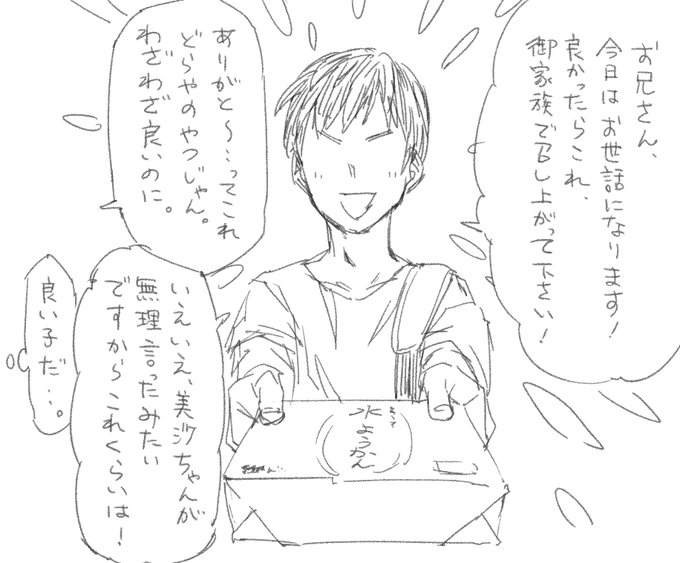 お兄さん、
今日はお世話になります!
良かったらこれ、
御家族で召し上がって下さい!
ありがと〜…ってこれ
どらやのやつじゃん。
わざわざ良いのに。
いえいえ、美沙ちゃんが
無理言ったみたい
ですからこれくらいは!
良い子だ…。
水ようかん